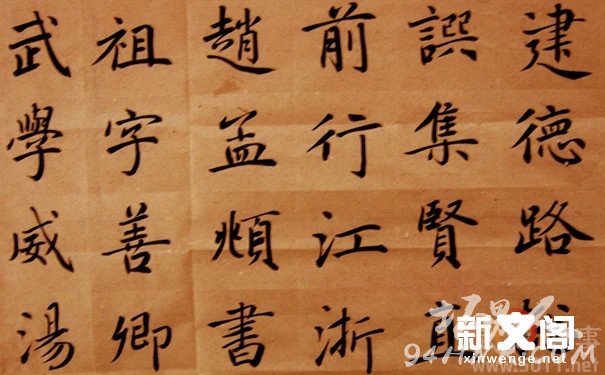 建德路
譔集賢
前行江浙
趙孟頫書
祖字善卿
武學威湯
新文阁
xinwenge.net